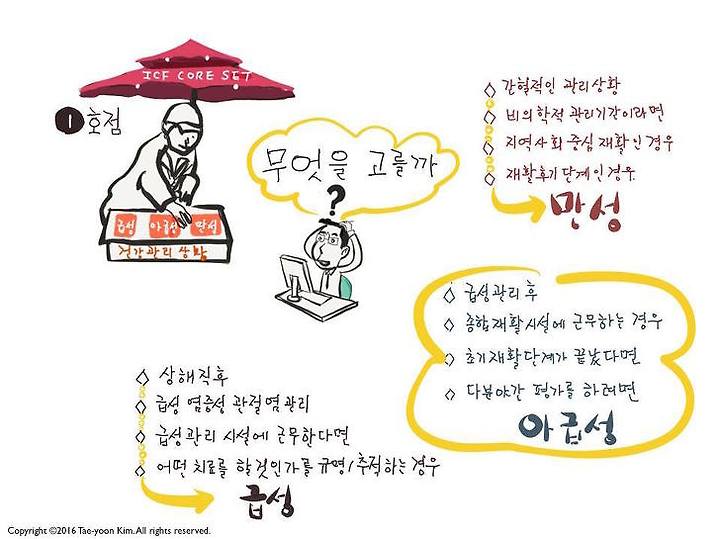 ICF CORE SET
1 호점
급성 아급성 만성
건강관리상황
무엇을 고를까
?
간헐적인 관리상황
비의학적 관리기관이라면
지역사회 중심 재활인 경우
재활후기단계인 경우
만성
급성관리 후
종합재활시설에 근무하는 경우
초기재활단계가 끝났다면
다분야간 평가를 하려면
아급성
상해직후
급성 염증성 관절염관리
급성관리 시설에 근무한다면
어떤 치료를 할것인가를 규명/추적하는 경우
급성
Copyright ©2016 Tae-yoon Kim. All rights reserved.